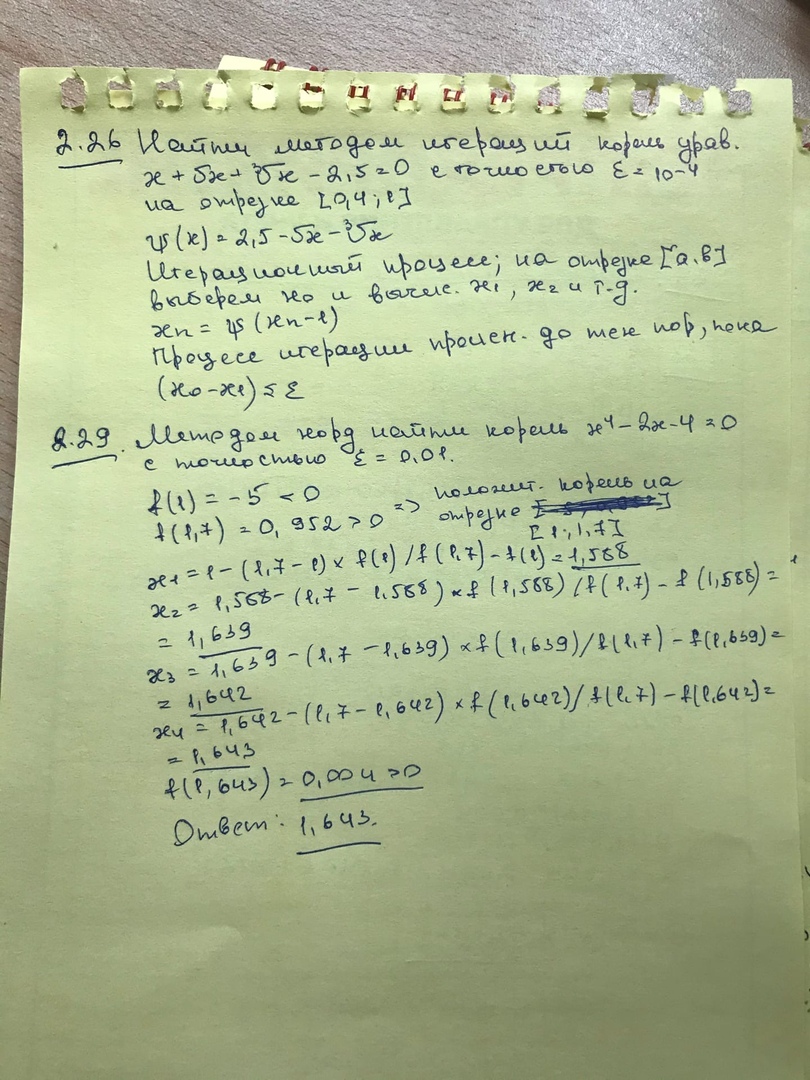 2.26 Найти методом итераций корень урав.
x + √x + ³√x - 2,5 = 0 с точностью ε = 10-4
на отрезке [0,4; 1]
ψ(x) = 2,5 - √x - ³√x
Итерационный процесс; на отрезке [a.b]
выберем x0 и вычис. x1, x2 и т.д.
xn = ψ (xn-1)
Процесс итерации должен. до тех пор, пока
(x0 - x1) ≤ ε
2.29. Методом хорд найти корень x⁴ - 2x - 4 = 0
с точностью ε = 0,01.
f(1) = -5 < 0
f(1,7) = 0,952 > 0 => полож. корень на
отрезке
[1; 1,7]
x1 = 1 - (1,7 - 1) × f(1) / f(1,7) - f(1) = 1,588
x2 = 1,588 - (1,7 - 1.588) × f(1,588) / f(1,7) - f(1,588) =
= 1,639
x3 = 1,639 - (1,7 - 1,639) × f(1,639) / f(1,7) - f(1,639) =
= 1,642
x4 = 1,642 - (1,7 - 1,642) × f(1,642) / f(1,7) - f(1,642) =
= 1,643
f(1,643) = 0,004 > 0
Ответ: 1,643.